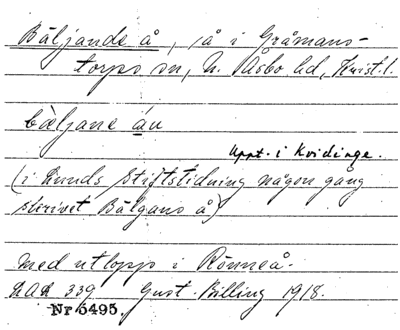 Bäljande å, /å i Gråmans-
torps sn, N. Åsbo hd, Krist. l.
bæljane áu
uppt. i Kvidinge.
(i Lunds Stiftstidning någon gång
skrivet Bälgans å)
med utlopp i Rönneå.
LAL 339 Gust. Billing 1918.
Nr 5495.